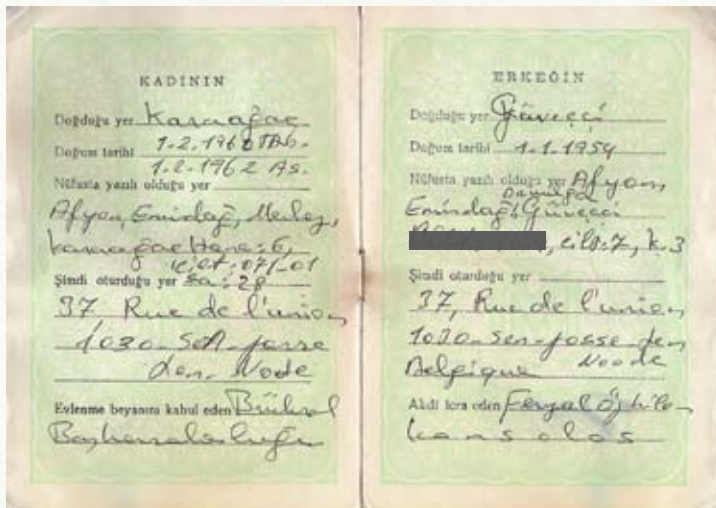 KADININ
Doğduğu yer Karaağaç
Doğum tarihi 1.2.1960 TAS.
1.2.1962 AS.
Nüfusta yazılı olduğu yer
Afyon, Emirdağ, Merkez,
Karaağaç Hane: 6,
cilt: 071-01
Şimdi oturduğu yer Sa: 28
37 Rue de l'union
1030 - Sen-josse
den-Node
Evlenme beyanını kabul eden Brüksel
Başkonsolosluğu
ERKEĞİN
Doğduğu yer Güveççi
Doğum tarihi 1.1.1954
Nüfusta yazılı olduğu yer Afyon,
Emirdağ, Güveççi
, cilt: 7, k.3
Şimdi oturduğu yer
37, Rue de l'union
1030 - Sen-josse den
Belgique Noode
Akdi icra eden Feryal
konsolos